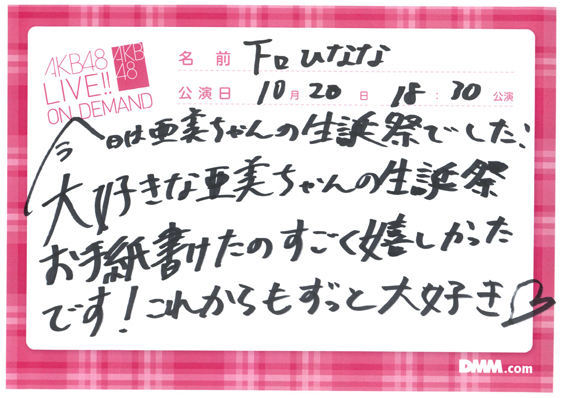 AKB48
LIVE!!
ON DEMAND
AKB
48
名前 下口ひなな
公演日 10月20日 18:30公演
今日は亜美ちゃんの生誕祭でした!
大好きな亜美ちゃんの生誕祭
お手紙書けたのすごく嬉しかった
です!これからもずっと大好き
DMM.com